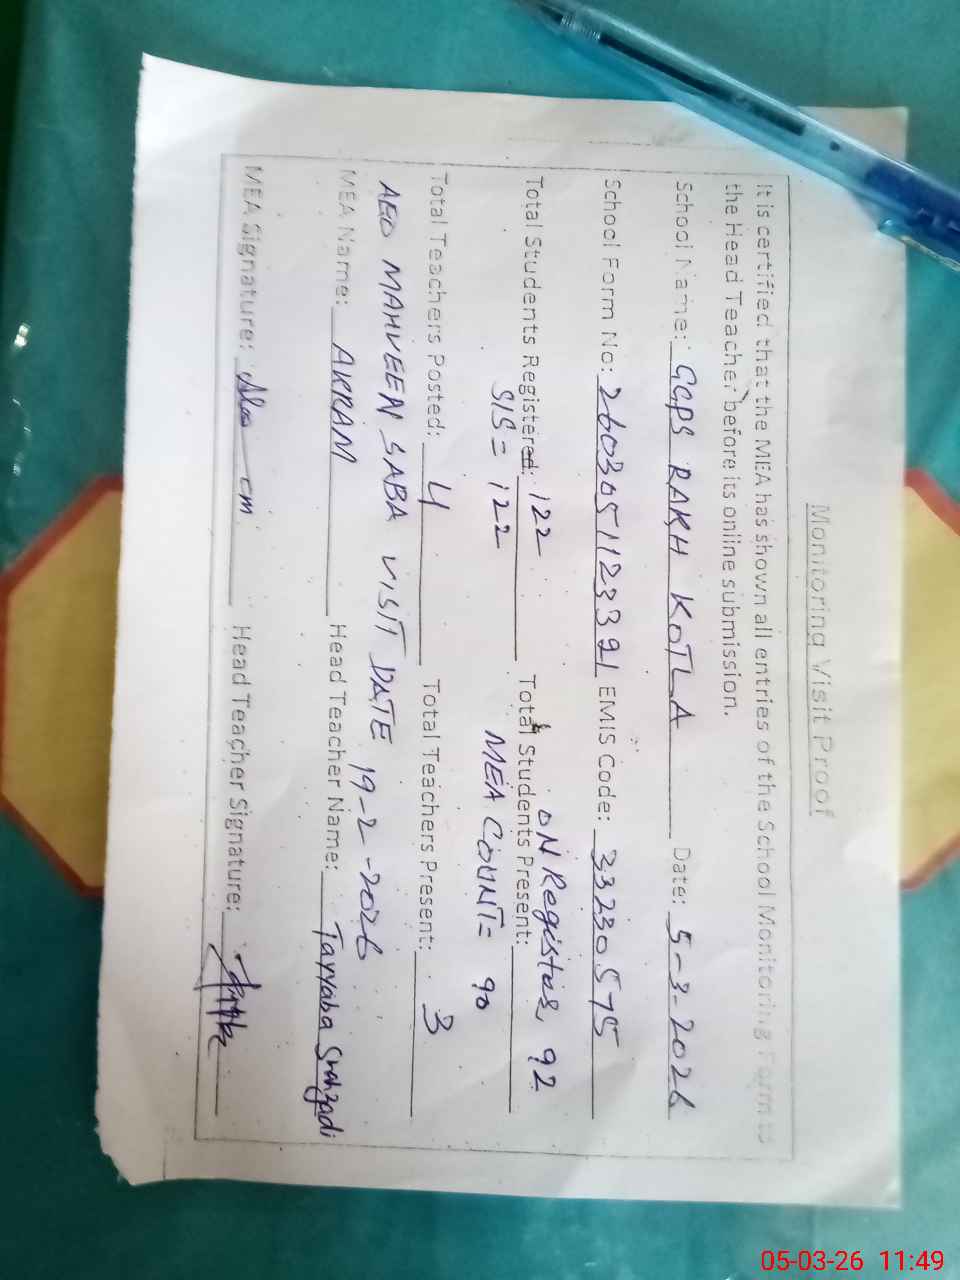 Monitoring Visit Proof
It is certified that the MEA has shown all entries of the School Monitoring Form to
the Head Teacher before its online submission.
School Name: GGPS RAKH KOTLA Date: 5-3-2026
School Form No: 2603051123321 EMIS Code: 33230575
Total Students Registered: 122 Total Students Present: ON Register, 92
SIS = 122 MEA COUNT = 90
Total Teachers Posted: 4 Total Teachers Present: 3
AEO MAHVEEN SABA VISIT DATE 19-2-2026
MEA Name: AKRAM Head Teacher Name: Tayyaba Shahzadi
MEA Signature: Head Teacher Signature:
05-03-26 11:49